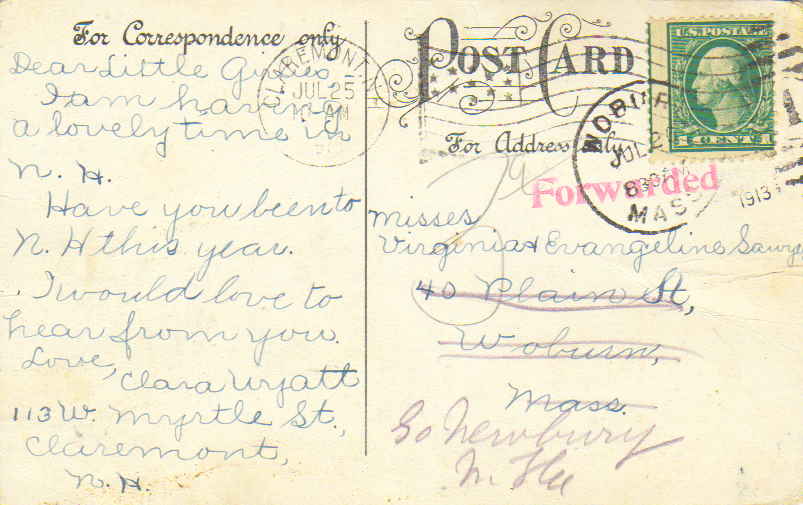 For Correspondence only
Dear Little Girlies
I am having
a lovely time in
N. H.
Have you been to
N. H this year.
I would love to
hear from you.
Love,
Clara Wyatt
113 W. Myrtle St.,
Claremont,
N. H.
CLAREMONT, N.
JUL 25
AM
POST CARD
For Address only
U.S. POSTAGE
1 CENT 1
WOBURN
JUL 2
830P
MASS
1913
Forwarded
Misses
Virginia & Evangeline Sawye
40 Plain St,
Woburn,
Mass.
So Newbury
N. H